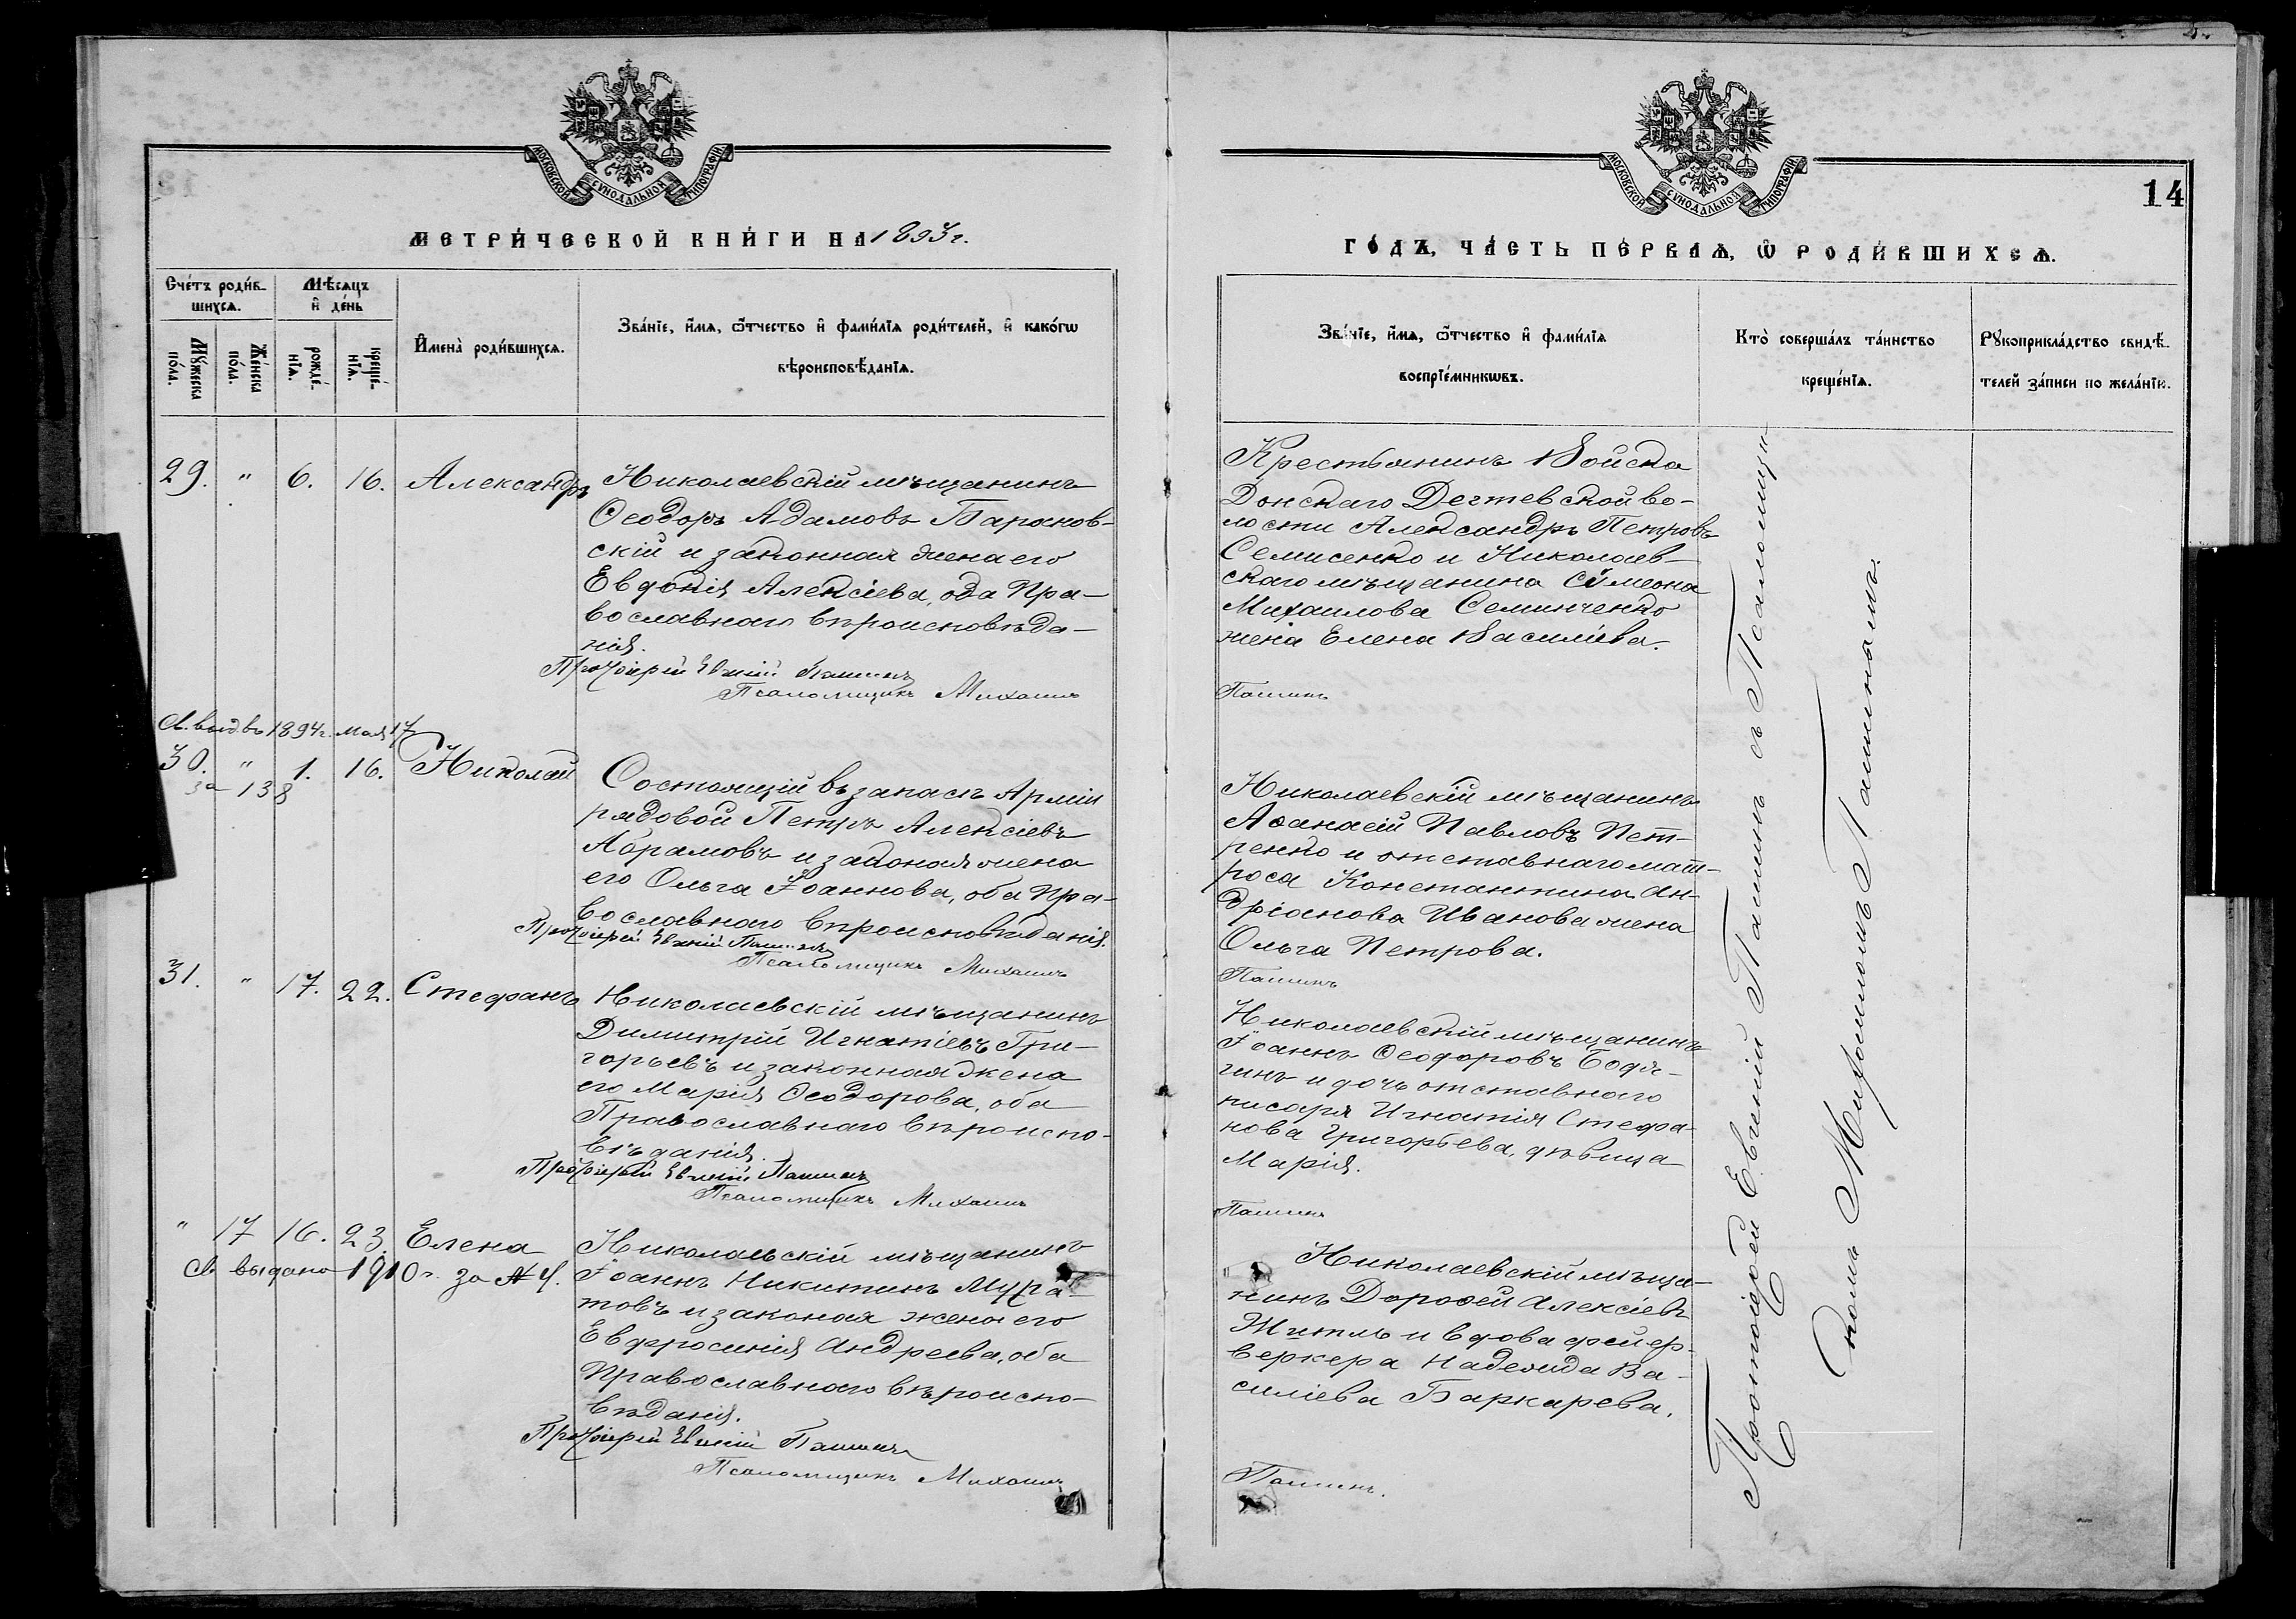 МОСКОВСКОЙ СѴНОДАЛЬНОЙ ТИПОГРАФІИ.
МЕТРИ́ЧЕСКОЙ КНИ́ГИ НА 1893 г.
Сче́тъ роди́в-
шихсѧ.
Мѣ́сѧцъ
и҆ де́нь
И҆мена̀ роди́вшихсѧ.
Зва́нїе, и҆́мѧ, ѻ҆́тчество и҆ фами́лїѧ роди́телей, и҆ како́гѡ
вѣроисповѣ́данїѧ.
Мꙋ́жеска
по́ла.
Же́нска
по́ла.
рожде́-
нїѧ.
креще́-
нїѧ.
29. " 6. 16. Александръ
Николаевскій мѣщанинъ
Ѳеодоръ Адамовъ Баранов-
скій и законная жена его
Евдокія Алексіева, оба Пра-
вославнаго вѣроисповѣда-
нія.
Протоіерей Евгеній Пашинъ
Псаломщикъ Михаилъ
Св. выд. въ 1894 г. мая 17
30. " 1. 16. Николай
за 138
Состоящій въ запасѣ Арміи
рядовой Петръ Алексіевъ
Абрамовъ и законая жена
его Ольга Іоаннова, оба Пра-
вославнаго вѣроисповѣданія.
Протоіерей Евгеній Пашинъ
Псаломщикъ Михаилъ
31. " 17. 22. Стефанъ
Николаевскій мѣщанинъ
Димитрій Игнатіевъ Гри-
горьевъ и законная жена
его Марія Ѳеодорова, оба
Православнаго вѣроиспо-
вѣданія.
Протоіерей Евгеній Пашинъ
Псаломщикъ Михаилъ
" 17 16. 23. Елена
Св. выдано 1910 г. за № 4.
Николаевскій мѣщанинъ
Іоаннъ Никитинъ Мура-
товъ и законая жена его
Евфросинія Андреева, оба
Православнаго вѣроиспо-
вѣданія.
Протоіерей Евгеній Пашинъ
Псаломщикъ Михаилъ
МОСКОВСКОЙ СѴНОДАЛЬНОЙ ТИПОГРАФІИ.
14
ГО́ДЪ, ЧА́СТЬ ПЕ́РВАѦ, Ѡ҆ РОДИ́ВШИХСѦ.
Зва́нїе, и҆́мѧ, ѻ҆́тчество и҆ фами́лїѧ
воспрїе́мникѡвъ.
Кто̀ соверша́лъ та́инство
креще́нїѧ.
Рꙋкоприкла́дство свидѣ́-
телей за́писи по жела́нїю.
Крестьянинъ Войска
Донскаго Дегтевской во-
лости Александръ Петровъ
Семисенко и Николаев-
скаго мѣщанина Симеона
Михаилова Семинченко
жена Елена Василіева.
Пашинъ
Николаевскій мѣщанинъ
Аѳанасій Павловъ Пет-
ренко и отставнаго мат-
роса Константина Ан-
дріанова Иванова жена
Ольга Петрова.
Пашинъ
Николаевскій мѣщанинъ
Іоаннъ Ѳеодоровъ Бодя-
гинъ и дочь отставнаго
писаря Игнатія Стефа-
нова Григорьева, дѣвица
Марія.
Пашинъ
Николаевскій мѣща-
нинъ Дороѳей Алексіевъ
Житль и вдова фейер-
веркера Надежда Ва-
силіева Баркарева.
Пашинъ.
Протоіерей Евгеній Пашинъ съ Псаломщи-
комъ Михаиломъ Пашинымъ.